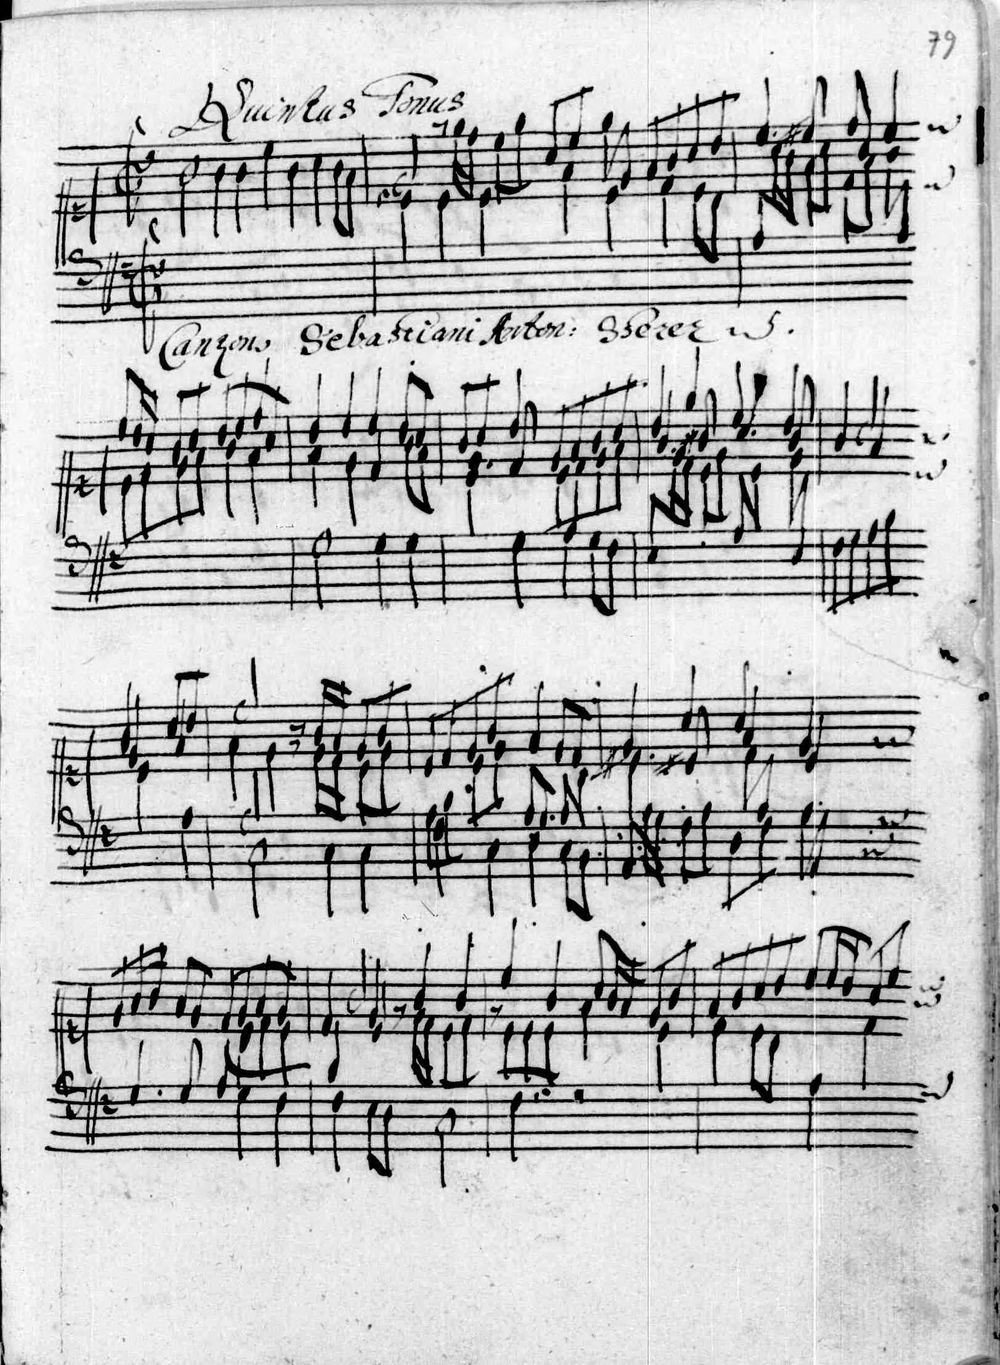 79
Quintus Tonus
Canzon Sebastiani Anton: Sherer